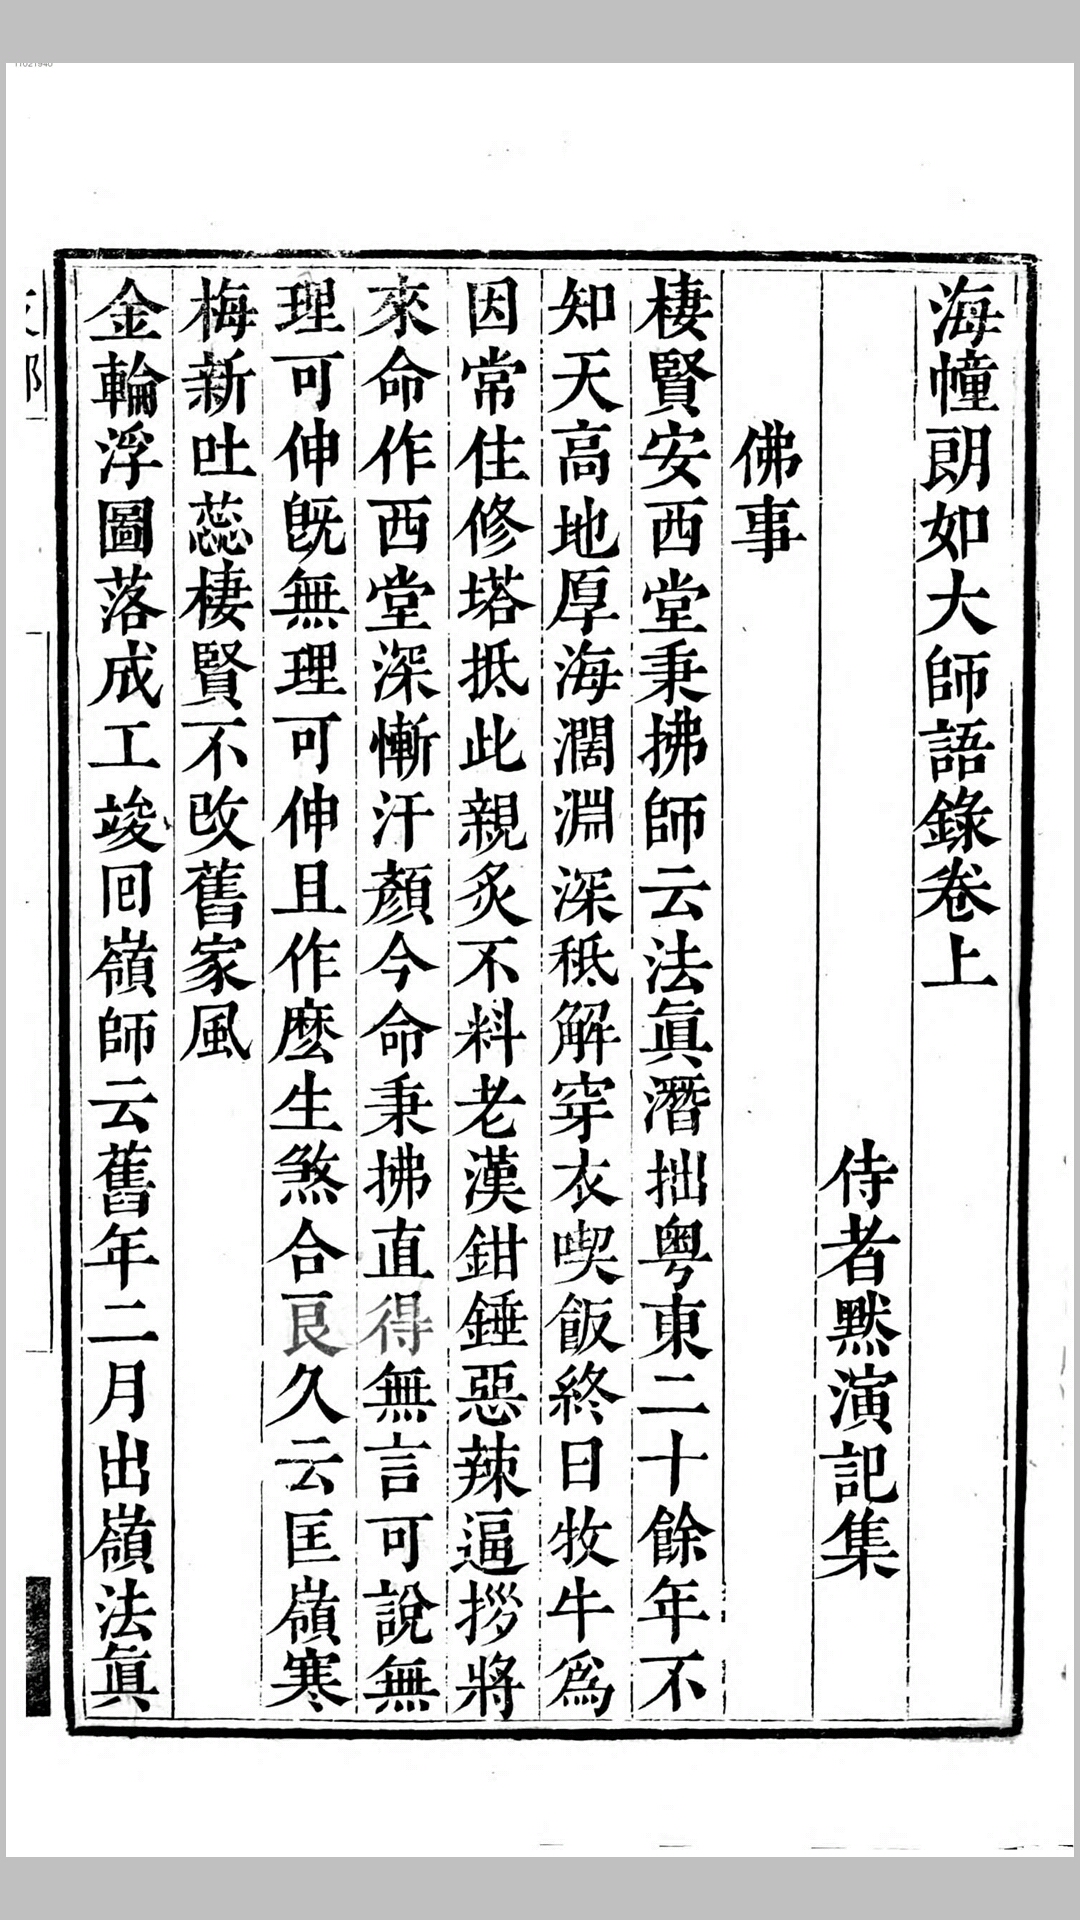 海幢朗如大師語錄卷上
侍者默演記集
佛事
棲賢安西堂秉拂師云法眞潛拙粤東二十餘年不
知天高地厚海濶淵深秪解穿衣喫飯終日牧牛爲
因常住修塔抵此親炙不料老漢鉗錘惡辣逼拶將
來命作西堂深慚汗顏今命秉拂直得無言可說無
理可伸旣無理可伸且作麽生煞合良久云匡嶺寒
梅新吐蕊棲賢不改舊家風
金輪浮圖落成工竣回嶺師云舊年二月出嶺法眞